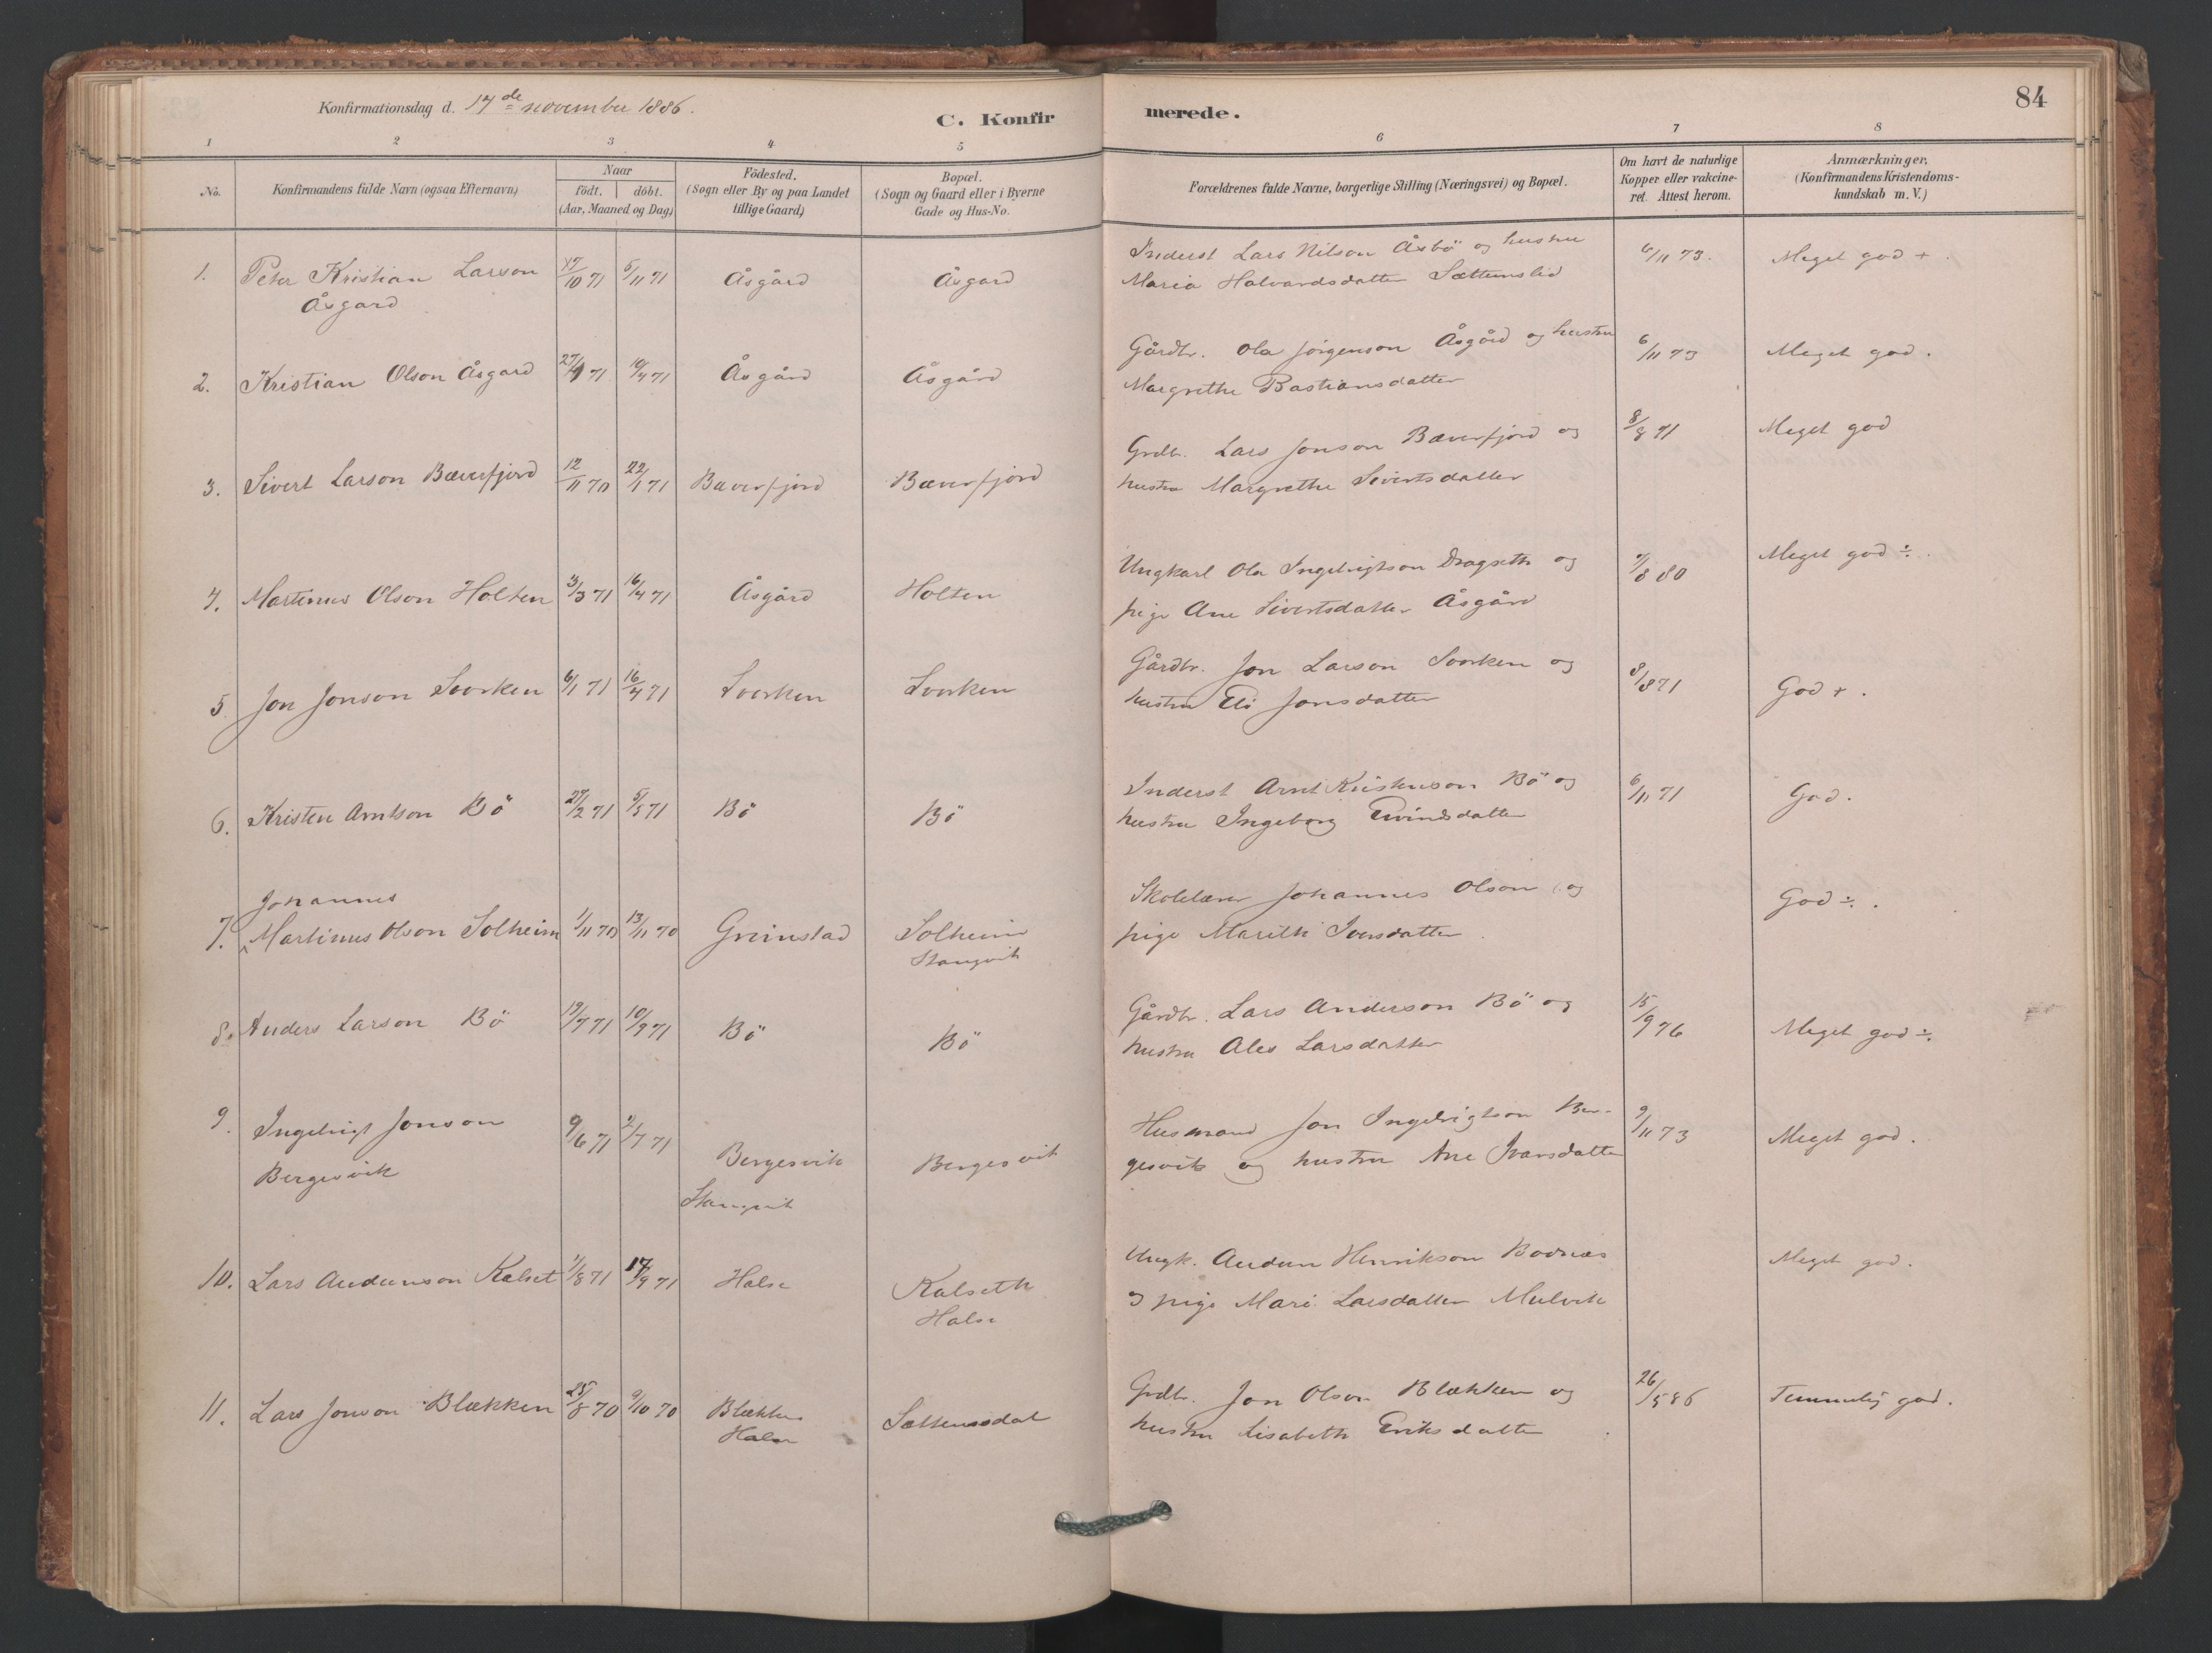 84
Konfirmationsdag d. 14de november 1886.
C. Konfirmerede.
1 2 3 4 5 6 7 8
No. Konfirmandens fulde Navn (ogsaa Efternavn) Naar födt. döbt. (Aar, Maaned og Dag) Födested. (Sogn eller By og paa Landet tillige Gaard) Bopæl. (Sogn og Gaard eller i Byerne Gade og Hus-No. Forældrenes fulde Navne, borgerlige Stilling (Næringsvei) og Bopæl. Om havt de naturlige Kopper eller vakcineret. Attest herom. Anmærkninger, (Konfirmandens Kristendomskundskab m. V.)
1. Peter Kristian Larson 17/10 71 5/11 71 Åsgård Åsgard Inderst Lars Nilson Åsbö og hustru 6/11 73. Meget god +.
Åsgard Maria Halvardsdatter Sættemslid
2. Kristian Olson Åsgard 27/1 71 10/4 71 Åsgård Åsgård Gårdbr. Ola Jörgenson Åsgård og hustru 6/11 73 Meget god.
Margrethe Bastiansdatter
3. Sivert Larson Bæverfjord 12/11 70 22/1 71 Bæverfjord Bæverfjord Grdbr. Lars Jonson Bæverfjord og 8/8 71 Meget god
hustru Margrethe Sivertsdatter
4. Martinus Olson Holten 3/3 71 16/4 71 Åsgård Holten Ungkarl Ola Ingebrigtson Dragseth og /8 80 Meget god ÷.
pige Ane Sivertsdatter Åsgård
5. Jon Jonson Svorken 6/1 71 16/4 71 Svorken Svorken Gårdbr. Jon Larson Svorken og 8/8 71 God +.
hustru Eli Jonsdatter
6. Kristen Arntson Bö 27/2 71 5/5 71 Bö Bö Inderst Arnt Kristenson Bö og 6/11 71 God.
hustru Ingeborg Eivindsdatter
Johannes
7. Martinus Olson Solheim 1/11 70 13/11 70 Grimstad Solheim Skolelærer Johannes Olson og God ÷.
Stangvik pige Marith Iversdatter.
8. Anders Larson Bö 19/7 71 10/9 71 Bö Bö Gårdbr. Lars Anderson Bö og 15/9 76 Meget god ÷.
hustru Ales Larsdatter
9. Ingebrigt Jonson 9/6 71 2/7 71 Bergesvik Bergesvik Husmand Jon Ingebrigtson Ber- 9/11 73 Meget god.
Bergesvik Stangvik gesvik og hustru Ane Ivarsdatter
10. Lars Audunson Kalset 1/8 71 17/9 71 Halse Kalseth Ungk. Audun Henrikson Bodnæs Meget god.
Halse og pige Mari Larsdatter Mulvik
11. Lars Jonson Blækken 25/8 70 9/10 70 Blækken Sættemsdal Grdbr. Jon Olson Blækken og 26/5 86 Temmelig god.
Halse hustru Lisabeth Eriksdatter